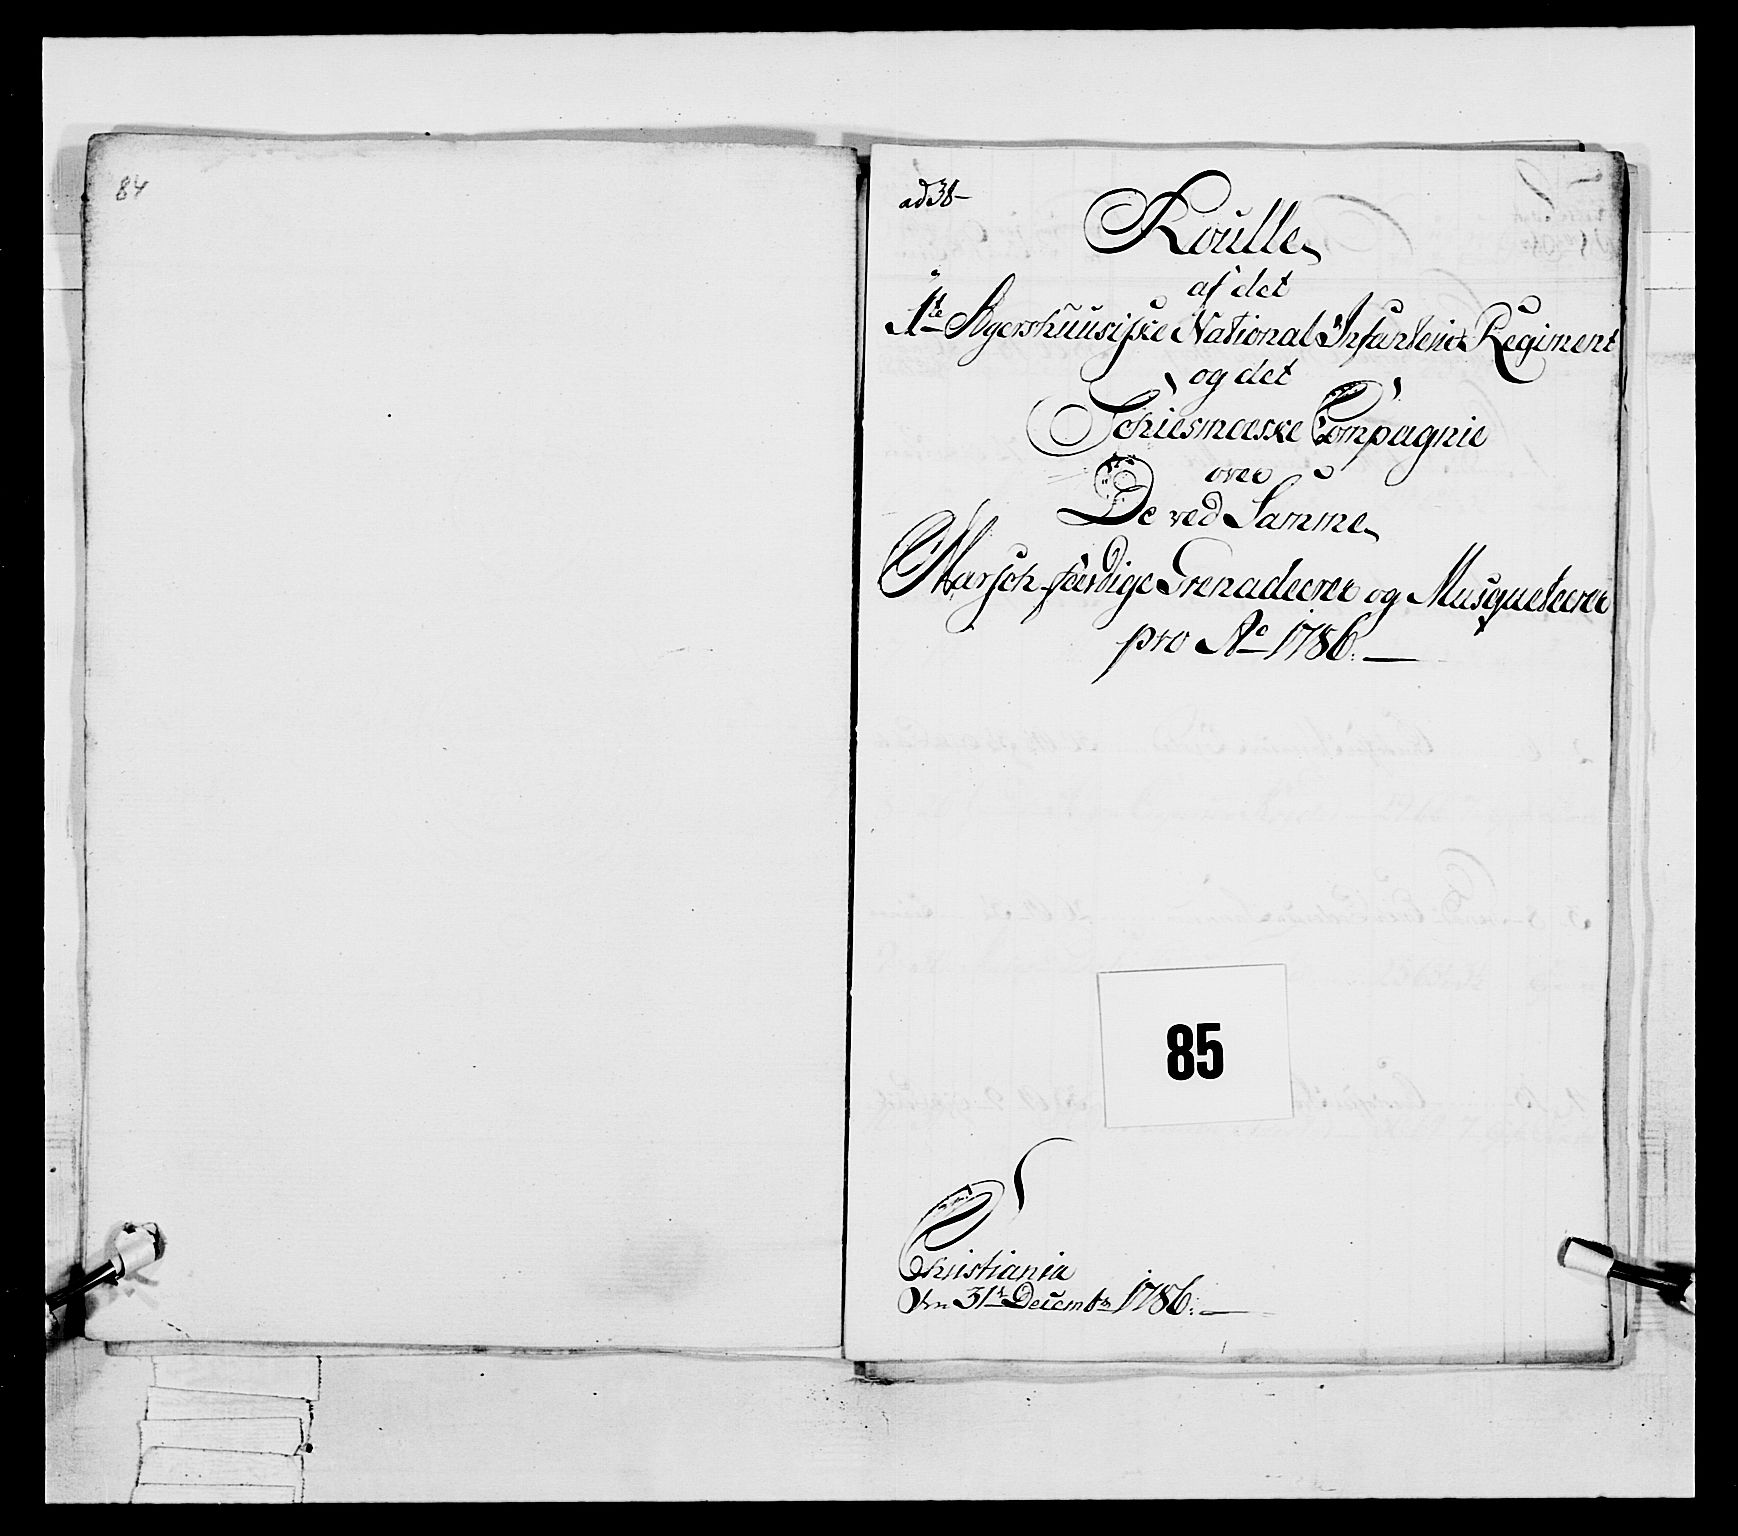 84
ad 38
Roulle
af det
1te Agershuusiske National Infanterie Regiment
og det
Schiesmoeske Compagnie
over
De ved Samme
Marsch-færdige Grenadeerer og Musqueteerer
pro Ao 1786.
85
Christiania
den 31t Decembr 1786.